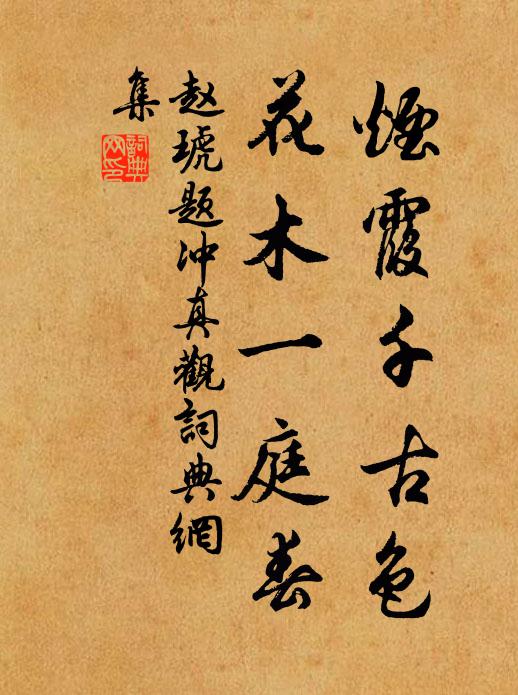 煙霞千古色
花木一庭春
赵琥题冲真觀詞典網
集
詞典
网印